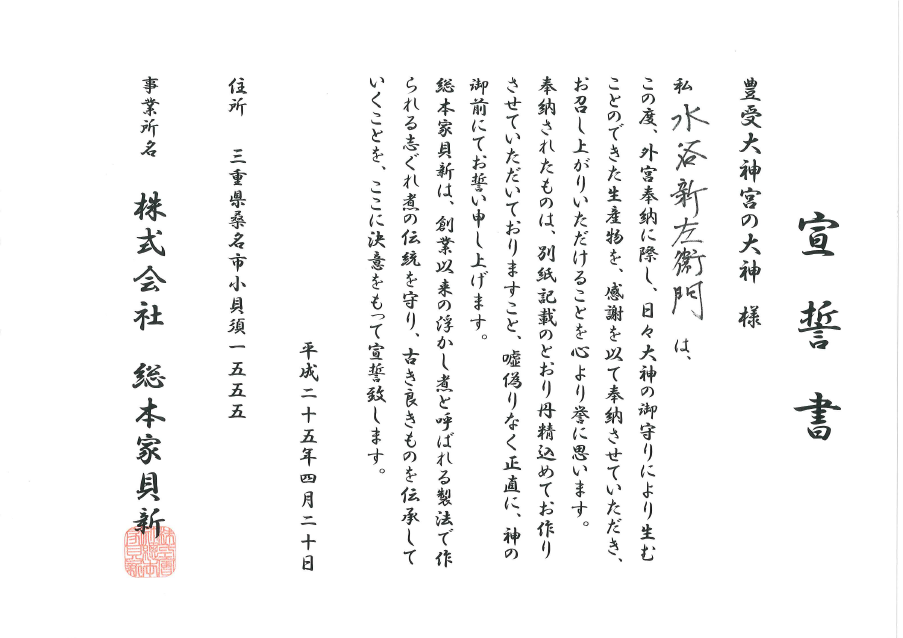 宣誓書
豊受大神宮の大神 様
私 水谷新左衛門 は、
この度、外宮奉納に際し、日々大神の御守りにより生む
ことのできた生産物を、感謝を以て奉納させていただき、
お召し上がりいただけることを心より誉に思います。
奉納されたものは、別紙記載のとおり丹精込めてお作り
させていただいておりますこと、嘘偽りなく正直に、神の
御前にてお誓い申し上げます。
総本家貝新は、創業以来の浮かし煮と呼ばれる製法で作
られる志ぐれ煮の伝統を守り、古き良きものを伝承して
いくことを、ここに決意をもって宣誓致します。
平成二十五年四月二十日
住所 三重県桑名市小貝須一五五五
事業所名 株式会社 総本家貝新